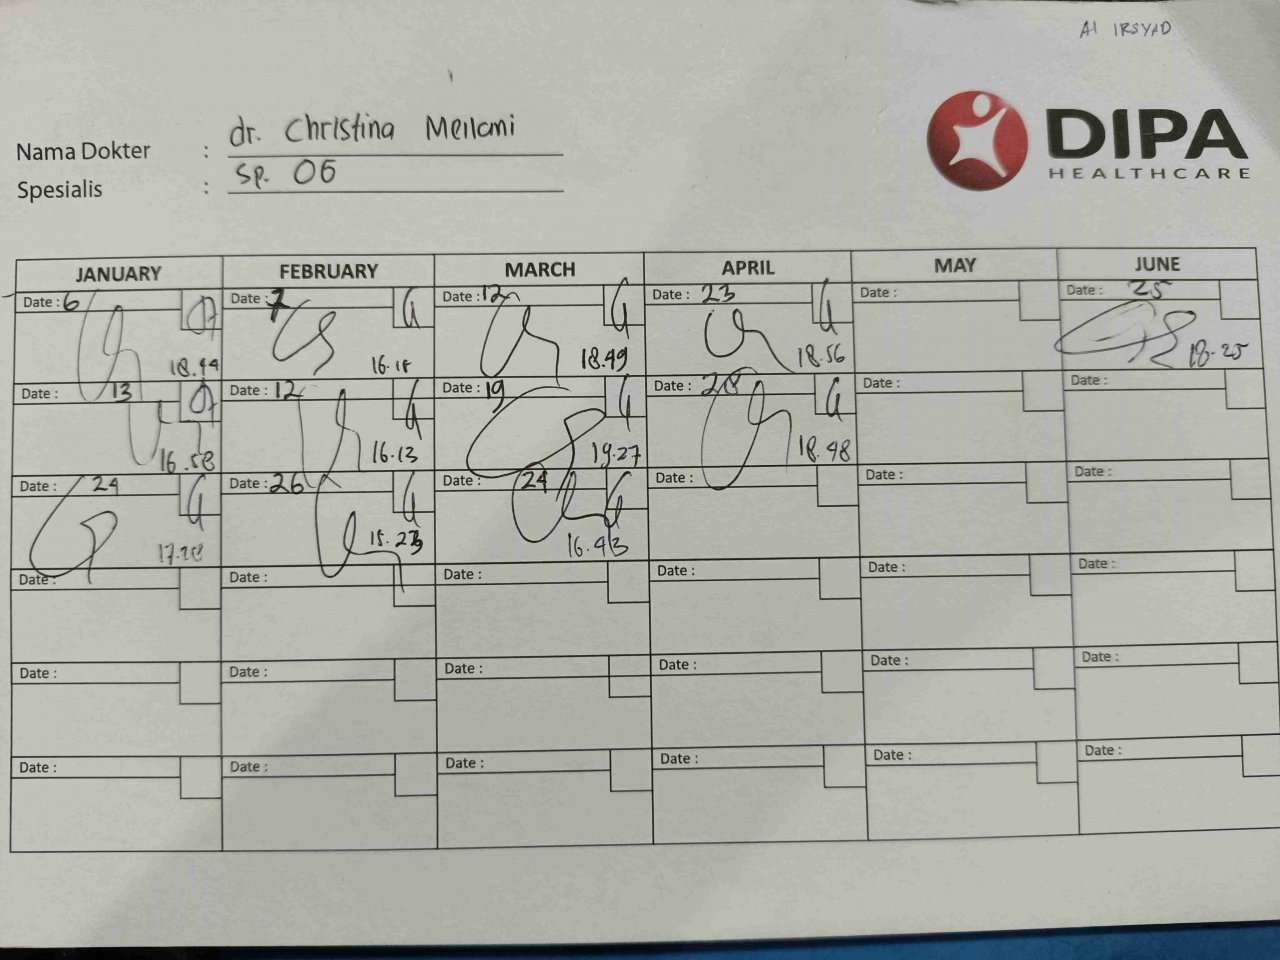 AI IRSYAD
DIPA
HEALTHCARE
Nama Dokter : dr. Christina Meilani
Spesialis : Sp. OG
JANUARY FEBRUARY MARCH APRIL MAY JUNE
Date : 6 Date : 7 Date : 12 Date : 23 Date : Date : 25
18.44 16.18 18.49 18.56 18.25
Date : 13 Date : 12 Date : 19 Date : 28 Date : Date :
16.58 16.13 19.27 18.48
Date : 24 Date : 26 Date : 24 Date : Date : Date :
16.43
Date : Date : Date : Date : Date : Date :
Date : Date : Date : Date : Date : Date :
Date : Date : Date : Date : Date : Date :